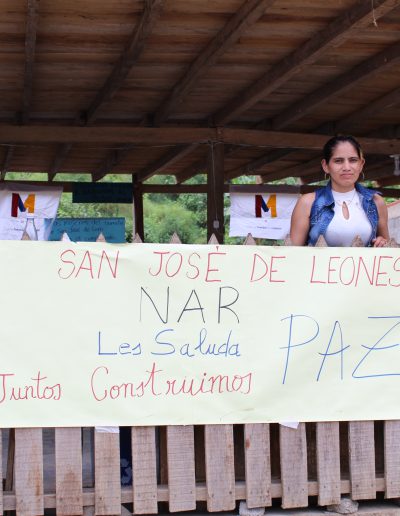 M
M
SAN JOSÉ DE LEONES
NAR
Les Saluda
PAZ
Juntos Construimos